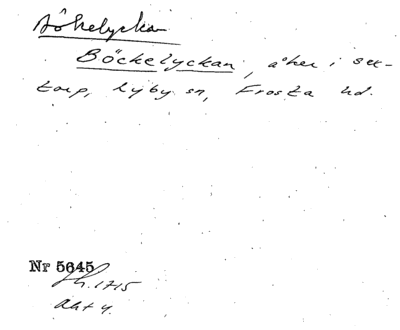 Bökelyckan
Böckelyckan, åker i Set-
torp, Lyby sn, Frosta hd.
Nr 5645
Lh. 1715
Akt 4.